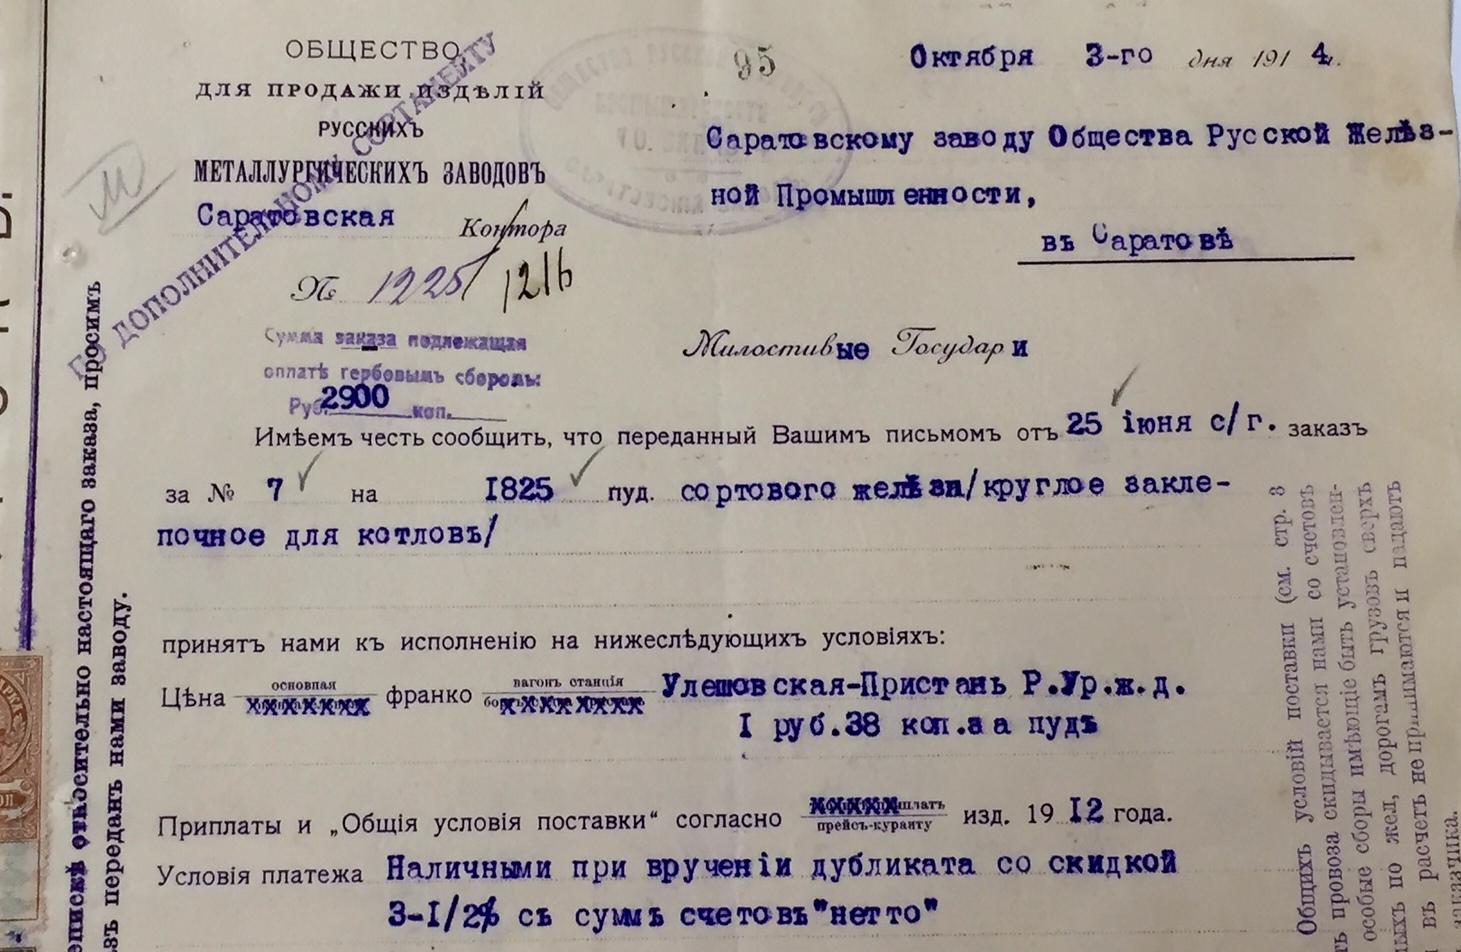 ОБЩЕСТВО
ДЛЯ ПРОДАЖИ ИЗДѢЛІЙ
РУССКИХЪ
МЕТАЛЛУРГИЧЕСКИХЪ ЗАВОДОВЪ
Саратовская Контора
№ 1225/1216
ПО ДОПОЛНИТЕЛЬНОМУ СОРТАМЕНТУ
95
Октября 3-го дня 1914г.
Саратовскому заводу Общества Русской Желѣз-
ной Промышленности,
въ Саратовѣ
Сумма заказа подлежащая
оплатѣ гербовымъ сборомъ:
Руб. 2900 коп.
Милостивые Государи
Имѣемъ честь сообщить, что переданный Вашимъ письмомъ отъ 25 іюня с/г. заказъ
за № 7 на 1825 пуд. сортового желѣза/круглое закле-
почное для котловъ/
принятъ нами къ исполненію на нижеслѣдующихъ условіяхъ:
Цѣна основная франко вагонъ станція Улешовская-Пристань Р.Ур.ж.д.
1 руб.38 коп.за пудъ
Приплаты и „Общія условія поставки“ согласно прейсъ-куранту изд. 1912 года.
Условія платежа Наличными при врученіи дубликата со скидкой
3-1/2% съ суммъ счетовъ"нетто"
относительно настоящаго заказа, просимъ
передавъ нами заводу.
Общихъ условій поставки (см. стр. 3
провоза скидывается нами со счетовъ
особые сборы имѣющіе быть установлен-
по жел. дорогамъ грузовъ сверхъ
въ расчетъ не принимаются и падаютъ
заказчика.